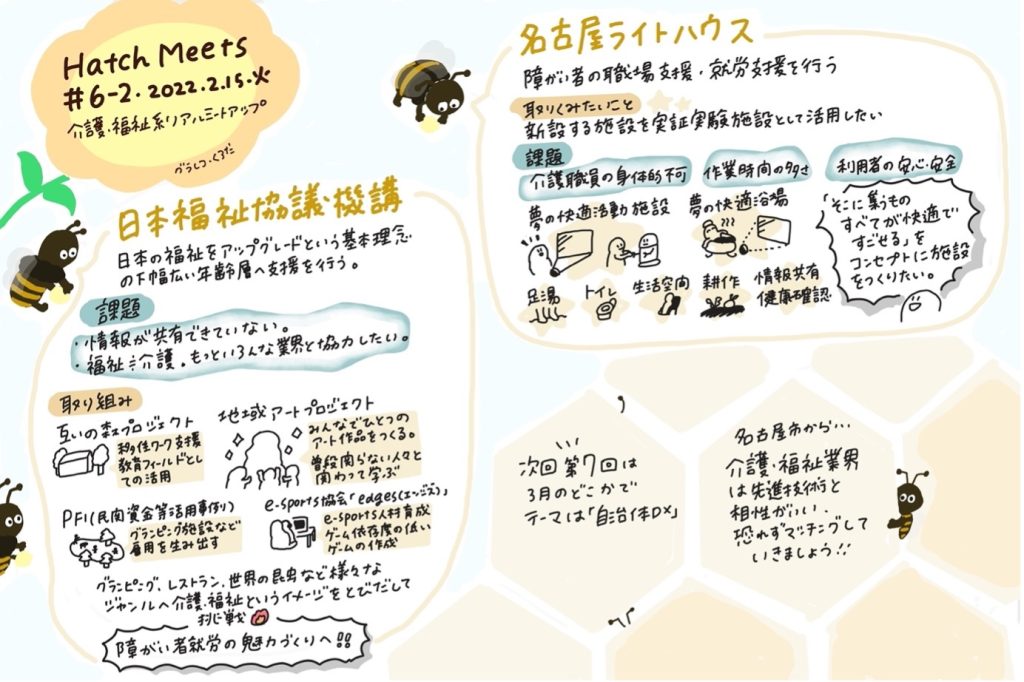 Hatch Meets
#6-2・2022.2.15.火
介護・福祉系リアルミートアップ
グラレコ・くろだ
日本福祉協議機構
日本の福祉をアップグレードという基本理念
の下幅広い年齢層へ支援を行う。
課題
・情報が共有できていない。
・福祉≒介護。もっといろんな業界と協力したい。
取り組み
互いの森プロジェクト
移住ワーク支援
教育フィールドとし
ての活用
地域アートプロジェクト
みんなでひとつの
アート作品をつくる。
普段関らない人々と
関わって学ぶ
PFI(民間資金等活用事例)
グランピング施設など
雇用を生み出す
e-sports協会「edges(エッジズ)」
e-sports人材育成
ゲーム依存度の低い
ゲームの作成
グランピング、レストラン、世界の昆虫など様々な
ジャンルへ介護・福祉というイメージをとびだして
挑戦
障がい者就労の魅力づくりへ!!
名古屋ライトハウス
障がい者の職場支援・就労支援を行う
取りくみたいこと
新設する施設を実証実験施設として活用したい
課題
介護職員の身体的不可
作業時間の多さ
利用者の安心・安全
夢の快適活動施設
夢の快適浴場
足湯
トイレ
生活空間
耕作
情報共有
健康確認
「そこに集うもの
すべてが快適で
すごせる」を
コンセプトに施設
をつくりたい。
次回第7回は
3月のどこかで
テーマは「自治体DX」
名古屋市から…
介護・福祉業界
は先進技術と
相性がいい。
恐れずマッチングして
いきましょう!!